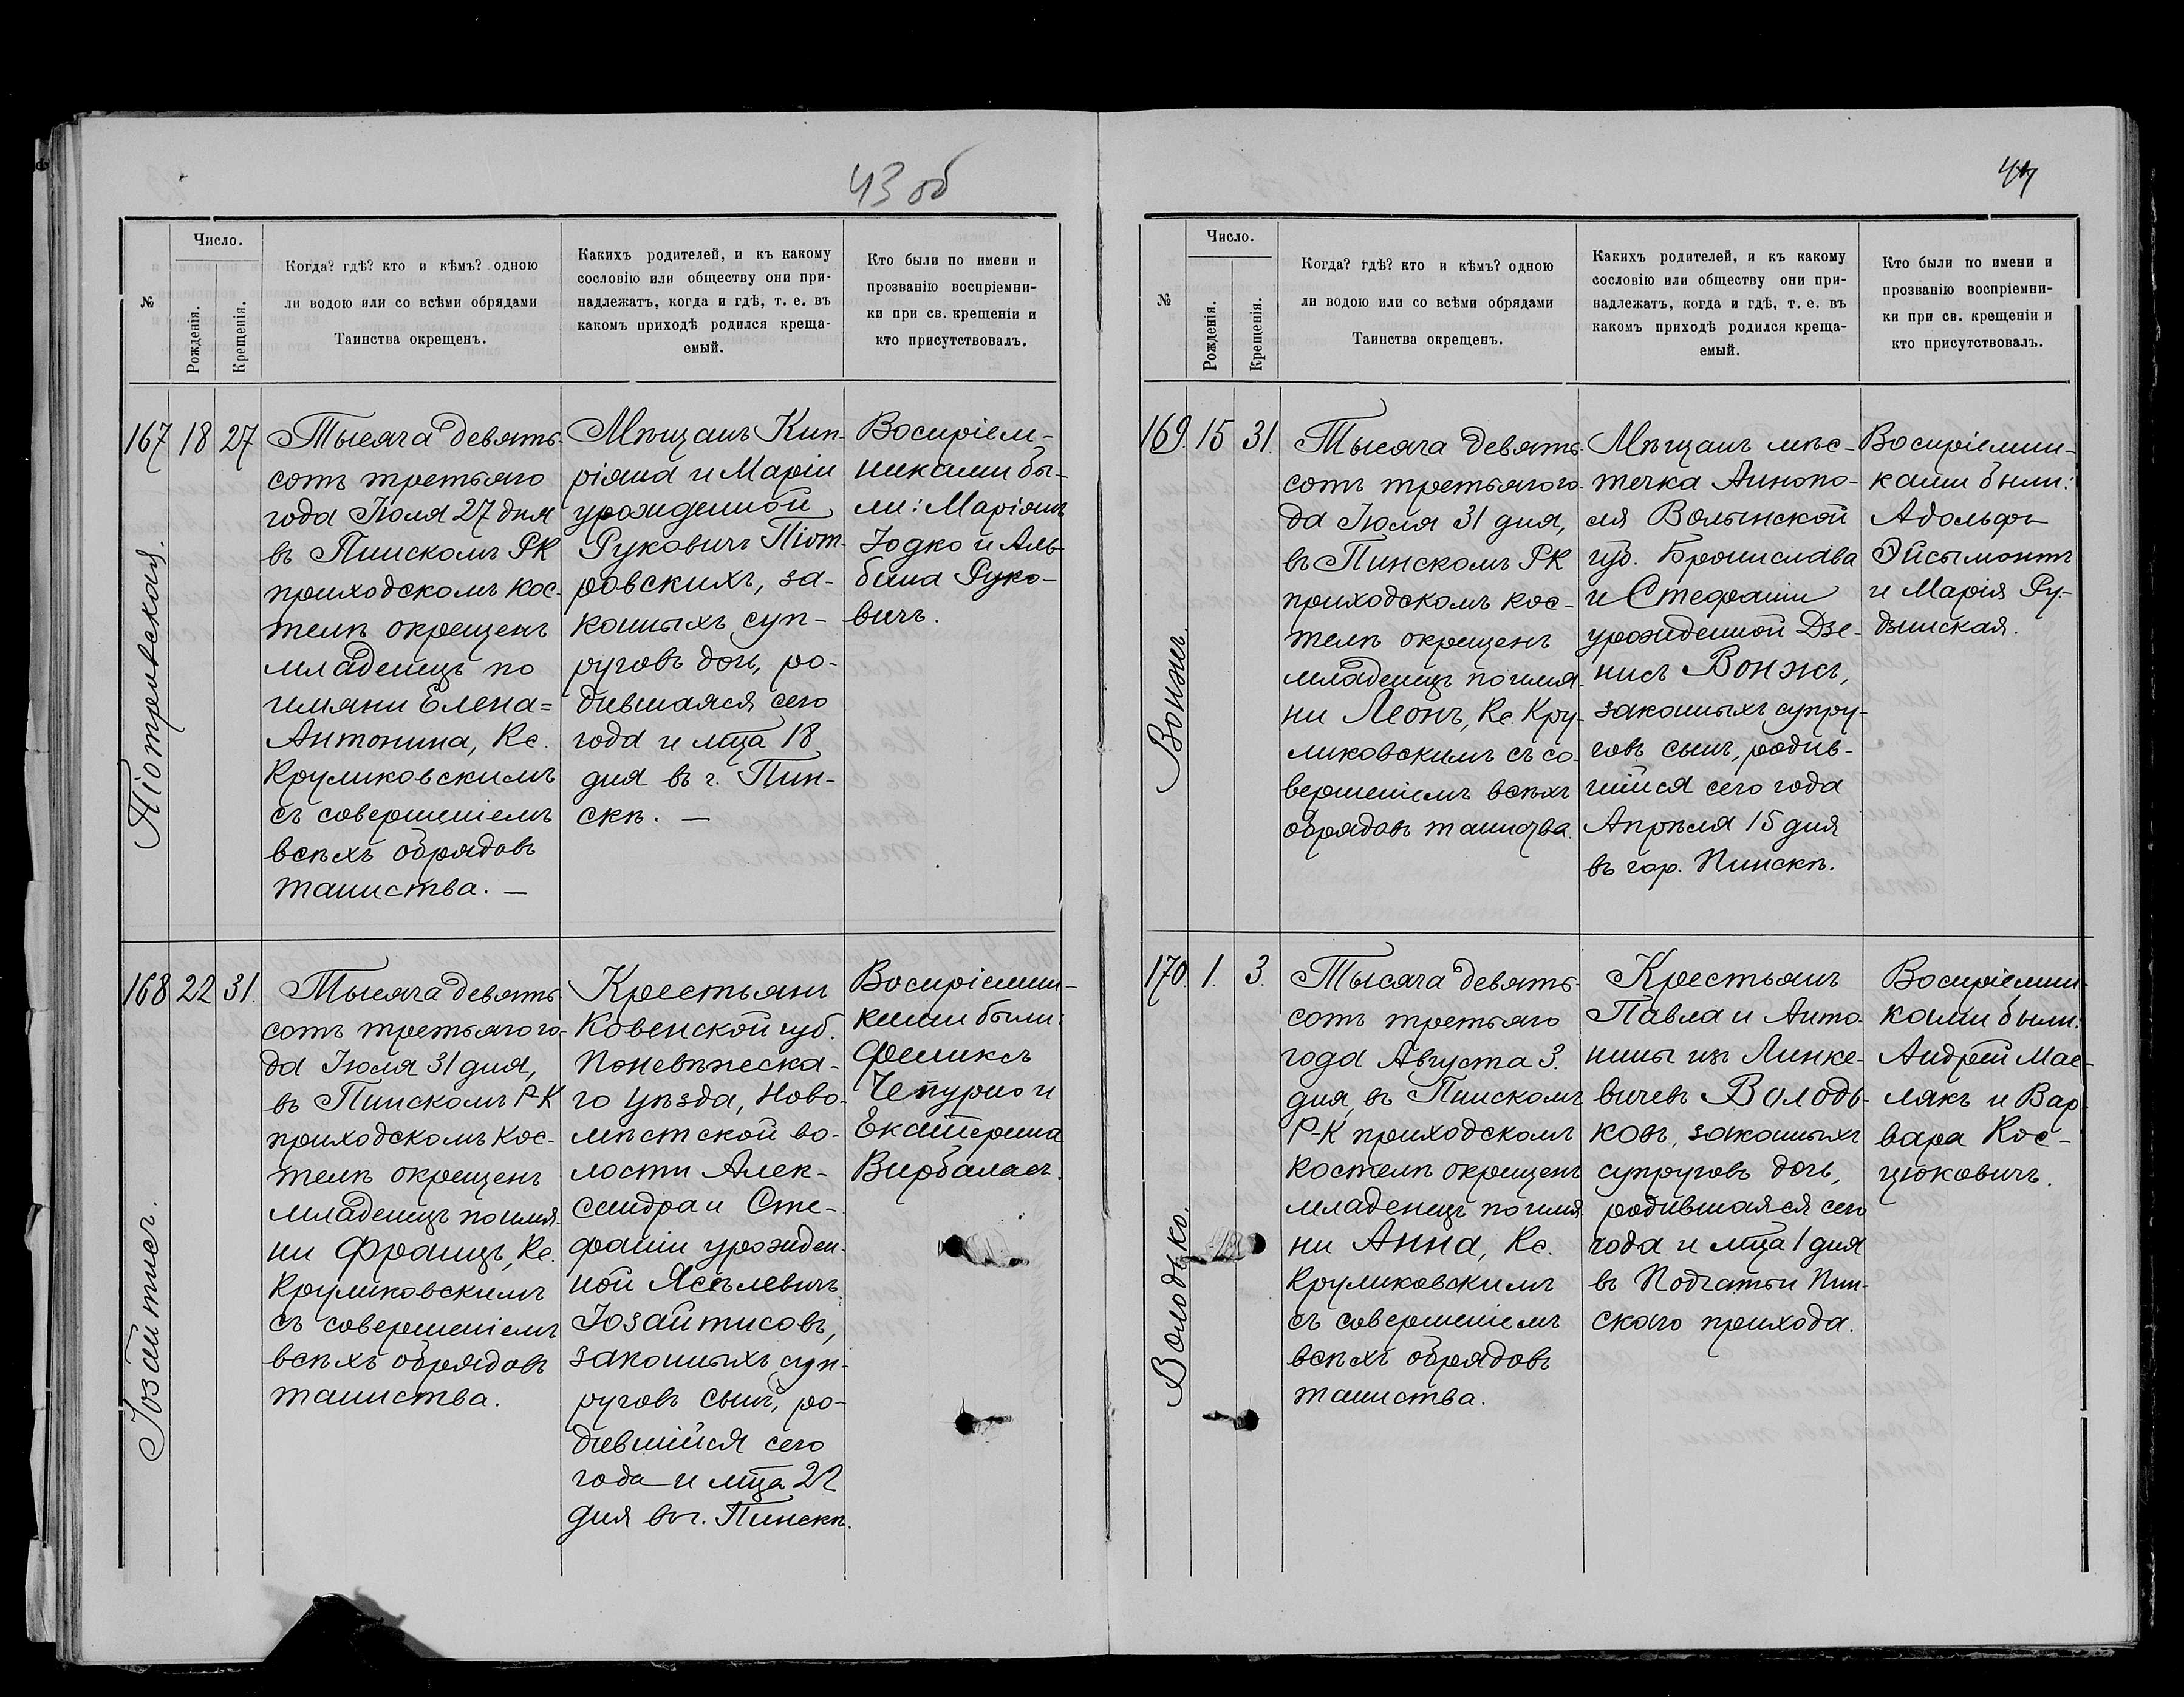 43 об
№
Число.
Рожденія.
Крещенія.
Когда? гдѣ? кто и кѣмъ? одною
ли водою или со всѣми обрядами
Таинства окрещенъ.
Какихъ родителей, и къ какому
сословію или обществу они при-
надлежатъ, когда и гдѣ, т. е. въ
какомъ приходѣ родился креща-
емый.
Кто были по имени и
прозванію воспріемни-
ки при св. крещеніи и
кто присутствовалъ.
167 18 27
Піотровская.
Тысяча девять-
сотъ третьяго
года Іюля 27 дня
въ Пинскомъ РК
приходскомъ кос-
телѣ окрещенъ
младенецъ по
имяни Елена=
Антонина, Кс.
Круликовскимъ
съ совершеніемъ
всѣхъ обрядовъ
таинства. —
Мѣщанъ Кип-
ріяна и Маріи
урожденной
Руковичъ Піот-
ровскихъ, за-
конныхъ суп-
руговъ дочь, ро-
дившаяся сего
года и мца 18
дня въ г. Пин-
скѣ. —
Воспріем-
никами бы-
ли: Маріянъ
Іодко и Аль-
бина Руко-
вичъ.
168 22 31.
Іозайтисъ.
Тысяча девять-
сотъ третьяго го-
да Іюля 31 дня,
въ Пинскомъ Р-К
приходскомъ кос-
телѣ окрещенъ
младенецъ по имя-
ни Францъ, Кс.
Круликовскимъ
съ совершеніемъ
всѣхъ обрядовъ
таинства.
Крестьянъ
Ковенской губ.
Поневѣжеска-
го Уѣзда, Ново-
мѣстской во-
лости Алек-
сандра и Сте-
фаніи урожден-
ной Ясѣлевичъ
Іозайтисовъ,
законныхъ суп-
руговъ сынъ, ро-
дившійся сего
года и мца 22
дня въ г. Пинскѣ.
Воспріемни-
ками были:
Феликсъ
Чепурно и
Екатерина
Вирбаласъ.
44
№
Число.
Рожденія.
Крещенія.
Когда? гдѣ? кто и кѣмъ? одною
ли водою или со всѣми обрядами
Таинства окрещенъ.
Какихъ родителей, и къ какому
сословію или обществу они при-
надлежатъ, когда и гдѣ, т. е. въ
какомъ приходѣ родился креща-
емый.
Кто были по имени и
прозванію воспріемни-
ки при св. крещеніи и
кто присутствовалъ.
169. 15 31.
Вонжъ.
Тысяча девять-
сотъ третьяго го-
да Іюля 31 дня,
въ Пинскомъ РК
приходскомъ кос-
телѣ окрещенъ
младенецъ по имя-
ни Леонъ, Кс. Кру-
ликовскимъ съ со-
вершеніемъ всѣхъ
обрядовъ таинства.
Мѣщанъ мѣс-
течка Аннопо-
ля Волынской
губ. Бронислава
и Стефаніи
урожденной Дзе-
нисъ Вонжъ,
законныхъ супру-
говъ сынъ, родив-
шійся сего года
Апрѣля 15 дня
въ гор. Пинскѣ.
Воспріемни-
ками были:
Адольфъ
Эйсымонтъ
и Марія Ру-
дзинская.
170. 1. 3.
Володько.
Тысяча девять-
сотъ третьяго
года Августа 3.
дня, въ Пинскомъ
Р-К приходскомъ
костелѣ окрещенъ
младенецъ по имя-
ни Анна, Кс.
Круликовскимъ
съ совершеніемъ
всѣхъ обрядовъ
таинства.
Крестьянъ
Павла и Анто-
нины изъ Линке-
вичевъ Володь-
ковъ, законныхъ
супруговъ дочь,
родившаяся сего
года и мца 1 дня
въ Подгатьи Пин-
скаго прихода.
Воспріемни-
ками были:
Андрей Мас-
лякъ и Вар-
вара Кос-
цюковичъ.